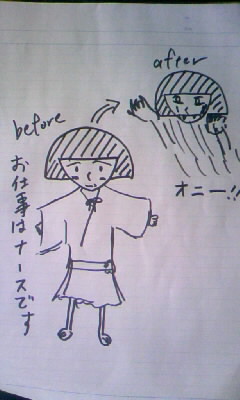 after
before
お仕事はナースです
オニー!!